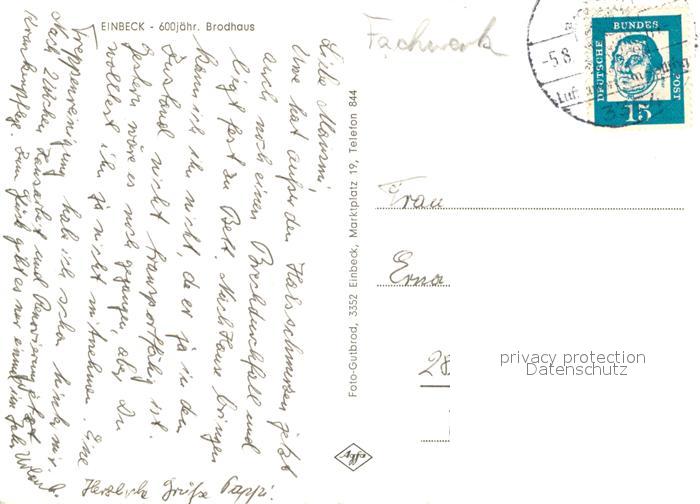 EINBECK - 600jähr. Brodhaus
Fachwerk
Liebe Mammi,
Uwe hat außer den Halsschmerzen jetzt
auch noch einen Brechdurchfall und
liegt fest zu Bett. Nach Haus bringen
kann ich ihn nicht, da er ja in dem
Zustand nicht transportfähig ist.
Gestern wäre es noch gegangen, aber Du
wolltest ihn ja nicht mitnehmen. Eine
Treppenreinigung hab ich schon hinter mir.
Nach 2 Wochen Hausarbeit und Renovierung jetzt
Krankenpflege. Zum Glück gibt es nur einmal im Jahr Urlaub.
Herzliche Grüße Pappi
Foto-Gutbrod, 3352 Einbeck, Marktplatz 19, Telefon 844
Agfa
DEUTSCHE BUNDESPOST
15
-5.8
Frau
Erna
28
privacy protection
Datenschutz